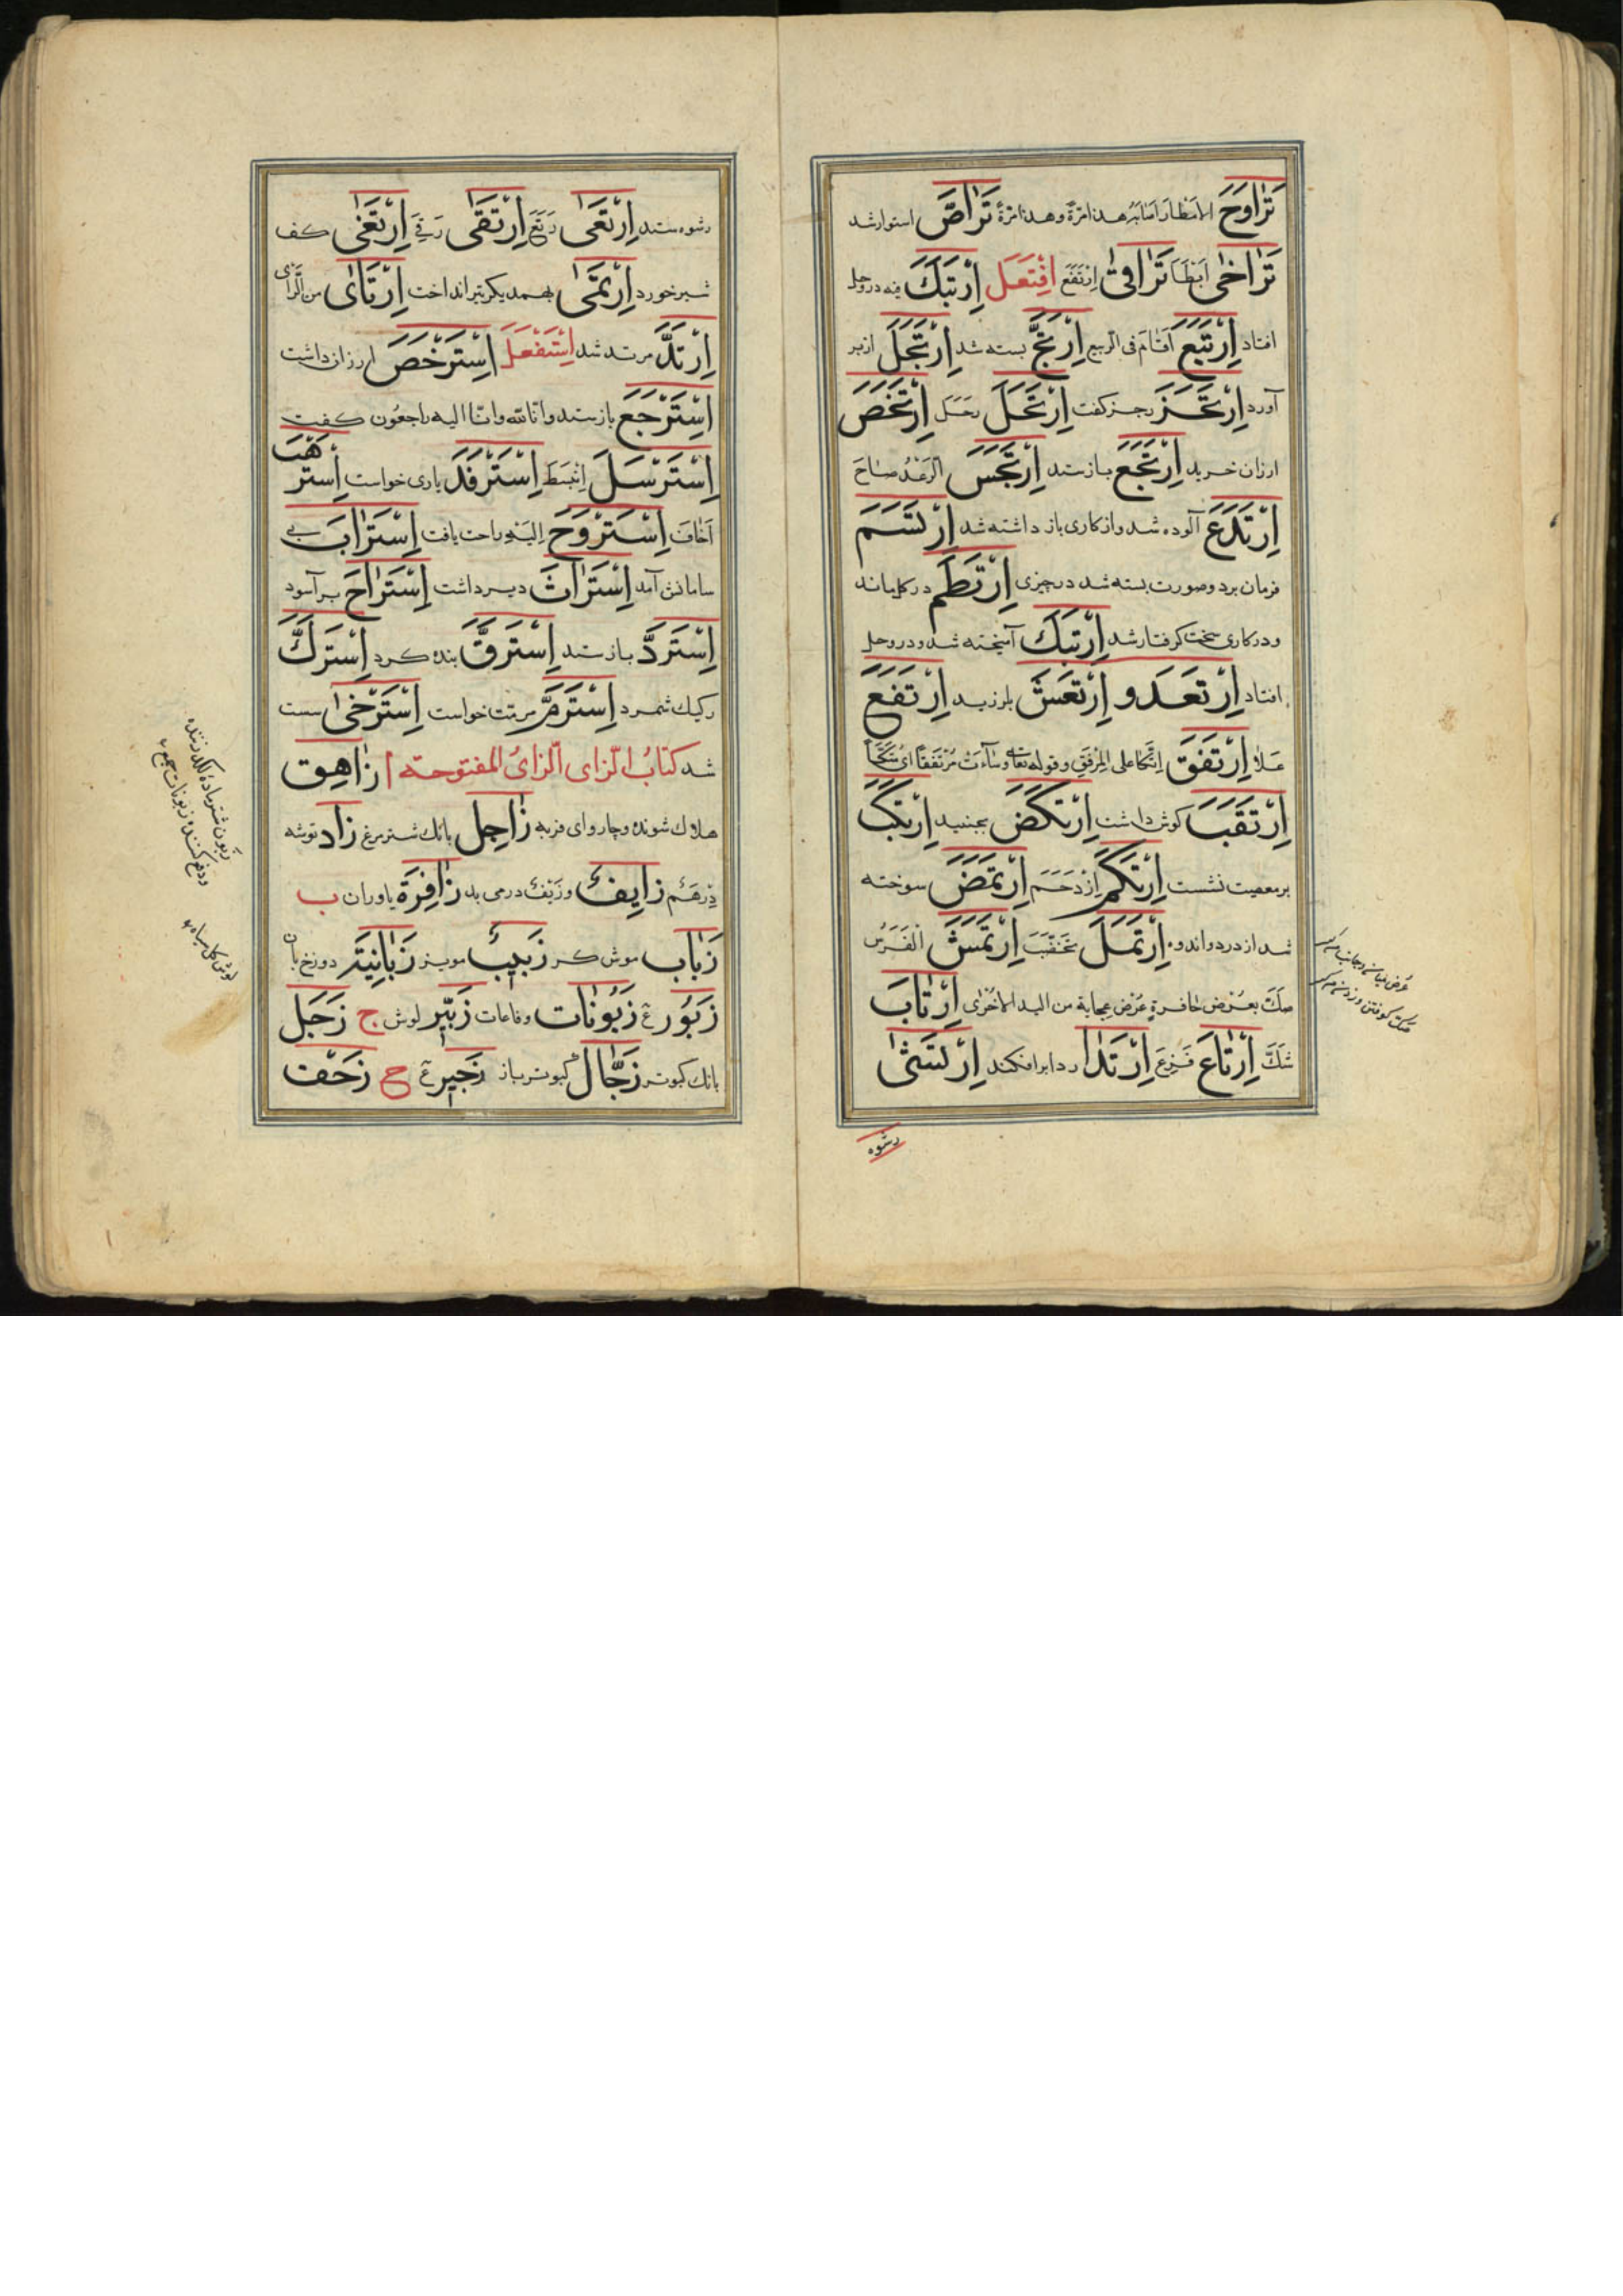 تَرٰاوَحَ الامطار اصابه هذا مرّة وهذا مرّة تَرٰاصَّ استوار شد
تَرٰاخٰى ابطأ تَرٰاقٰى ارتفع اِفْتَعَلَ اِرْتَبَكَ فيه در وحل
افتاد اِرْتَبَعَ اقام فى الربيع اِرْتَجَّ بسته شد اِرْتَجَلَ از بر
آورد اِرْتَجَزَ رجز كفت اِرْتَحَلَ رحل اِرْتَخَصَ
ارزان خريد اِرْتَجَعَ باز ستد اِرْتَجَسَ الرعد صاح
اِرْتَدَعَ آلوده شد و از كارى باز داشته شد اِرْتَسَمَ
فرمان برد و صورت بسته شد در چيزى اِرْتَطَمَ در كل بماند
و در كارى سخت كرفتار شد اِرْتَبَكَ آميخته شد و در وحل
افتاد اِرْتَعَدَ و اِرْتَعَشَ بلرزيد اِرْتَفَعَ
علا اِرْتَفَقَ اتّكا على المرفق وقوله تعالى وساءت مرتفقا اى متّكأ
اِرْتَقَبَ كوش داشت اِرْتَكَضَ بجنبيد اِرْتَكَبَ
بر معصيت نشست اِرْتَكَمَ ازدحم اِرْتَمَضَ سوخته
شد از درد و اندوه اِرْتَمَلَ تخضّب اِرْتَمَشَ الفرس
صكّ بعرض حافره عرض عجايته من اليد الاخرى اِرْتٰابَ
شكّ اِرْتٰاعَ فزع اِرْتَدٰا ردا بر افكند اِرْتَشٰى
رشوه
رشوه ستد اِرْتَعٰى رتع اِرْتَقٰى رقى اِرْتَغٰى كف
شير خورد اِرْتَمٰى بهمديكر تير انداخت اِرْتَاٰى من الراى
اِرْتَدَّ مرتد شد اِسْتَفْعَلَ اِسْتَرْخَصَ ارزان داشت
اِسْتَرْجَعَ باز ستد و انّا لله وانّا اليه راجعون كفت
اِسْتَرْسَلَ انبسط اِسْتَرْفَدَ يارى خواست اِسْتَرْهَبَ
اخاف اِسْتَرْوَحَ اليه راحت يافت اِسْتَرٰابَ بى
سامانش آمد اِسْتَرٰاثَ دير داشت اِسْتَرٰاحَ بر آسود
اِسْتَرَدَّ باز ستد اِسْتَرَقَّ بنده كرد اِسْتَرَكَّ
ركيك شمرد اِسْتَرَمَّ مرمّت خواست اِسْتَرْخٰى سست
شد كتاب الزاى الزاى المفتوحة ا زٰاهِق
هلاك شونده و چارواى فربه زٰاجِل بانك شتر مرغ زٰاد توشه
درهم زٰايِف و زيف درمى بد زٰافِرَة ياوران ب
زَبٰاب موش كر زَبيب مويز زَبٰانِيَة دوزخ بانان
زَبُور ع زَبُونٰات وفاعات زَبّير لوش ج زَجَل
بانك كبوتر زَجّٰال كبوتر باز زَجير ع ح زَحْف
زبون شتر ماده لكد زننده
ودفع كننده زبونات جمع
لوش كل سياه